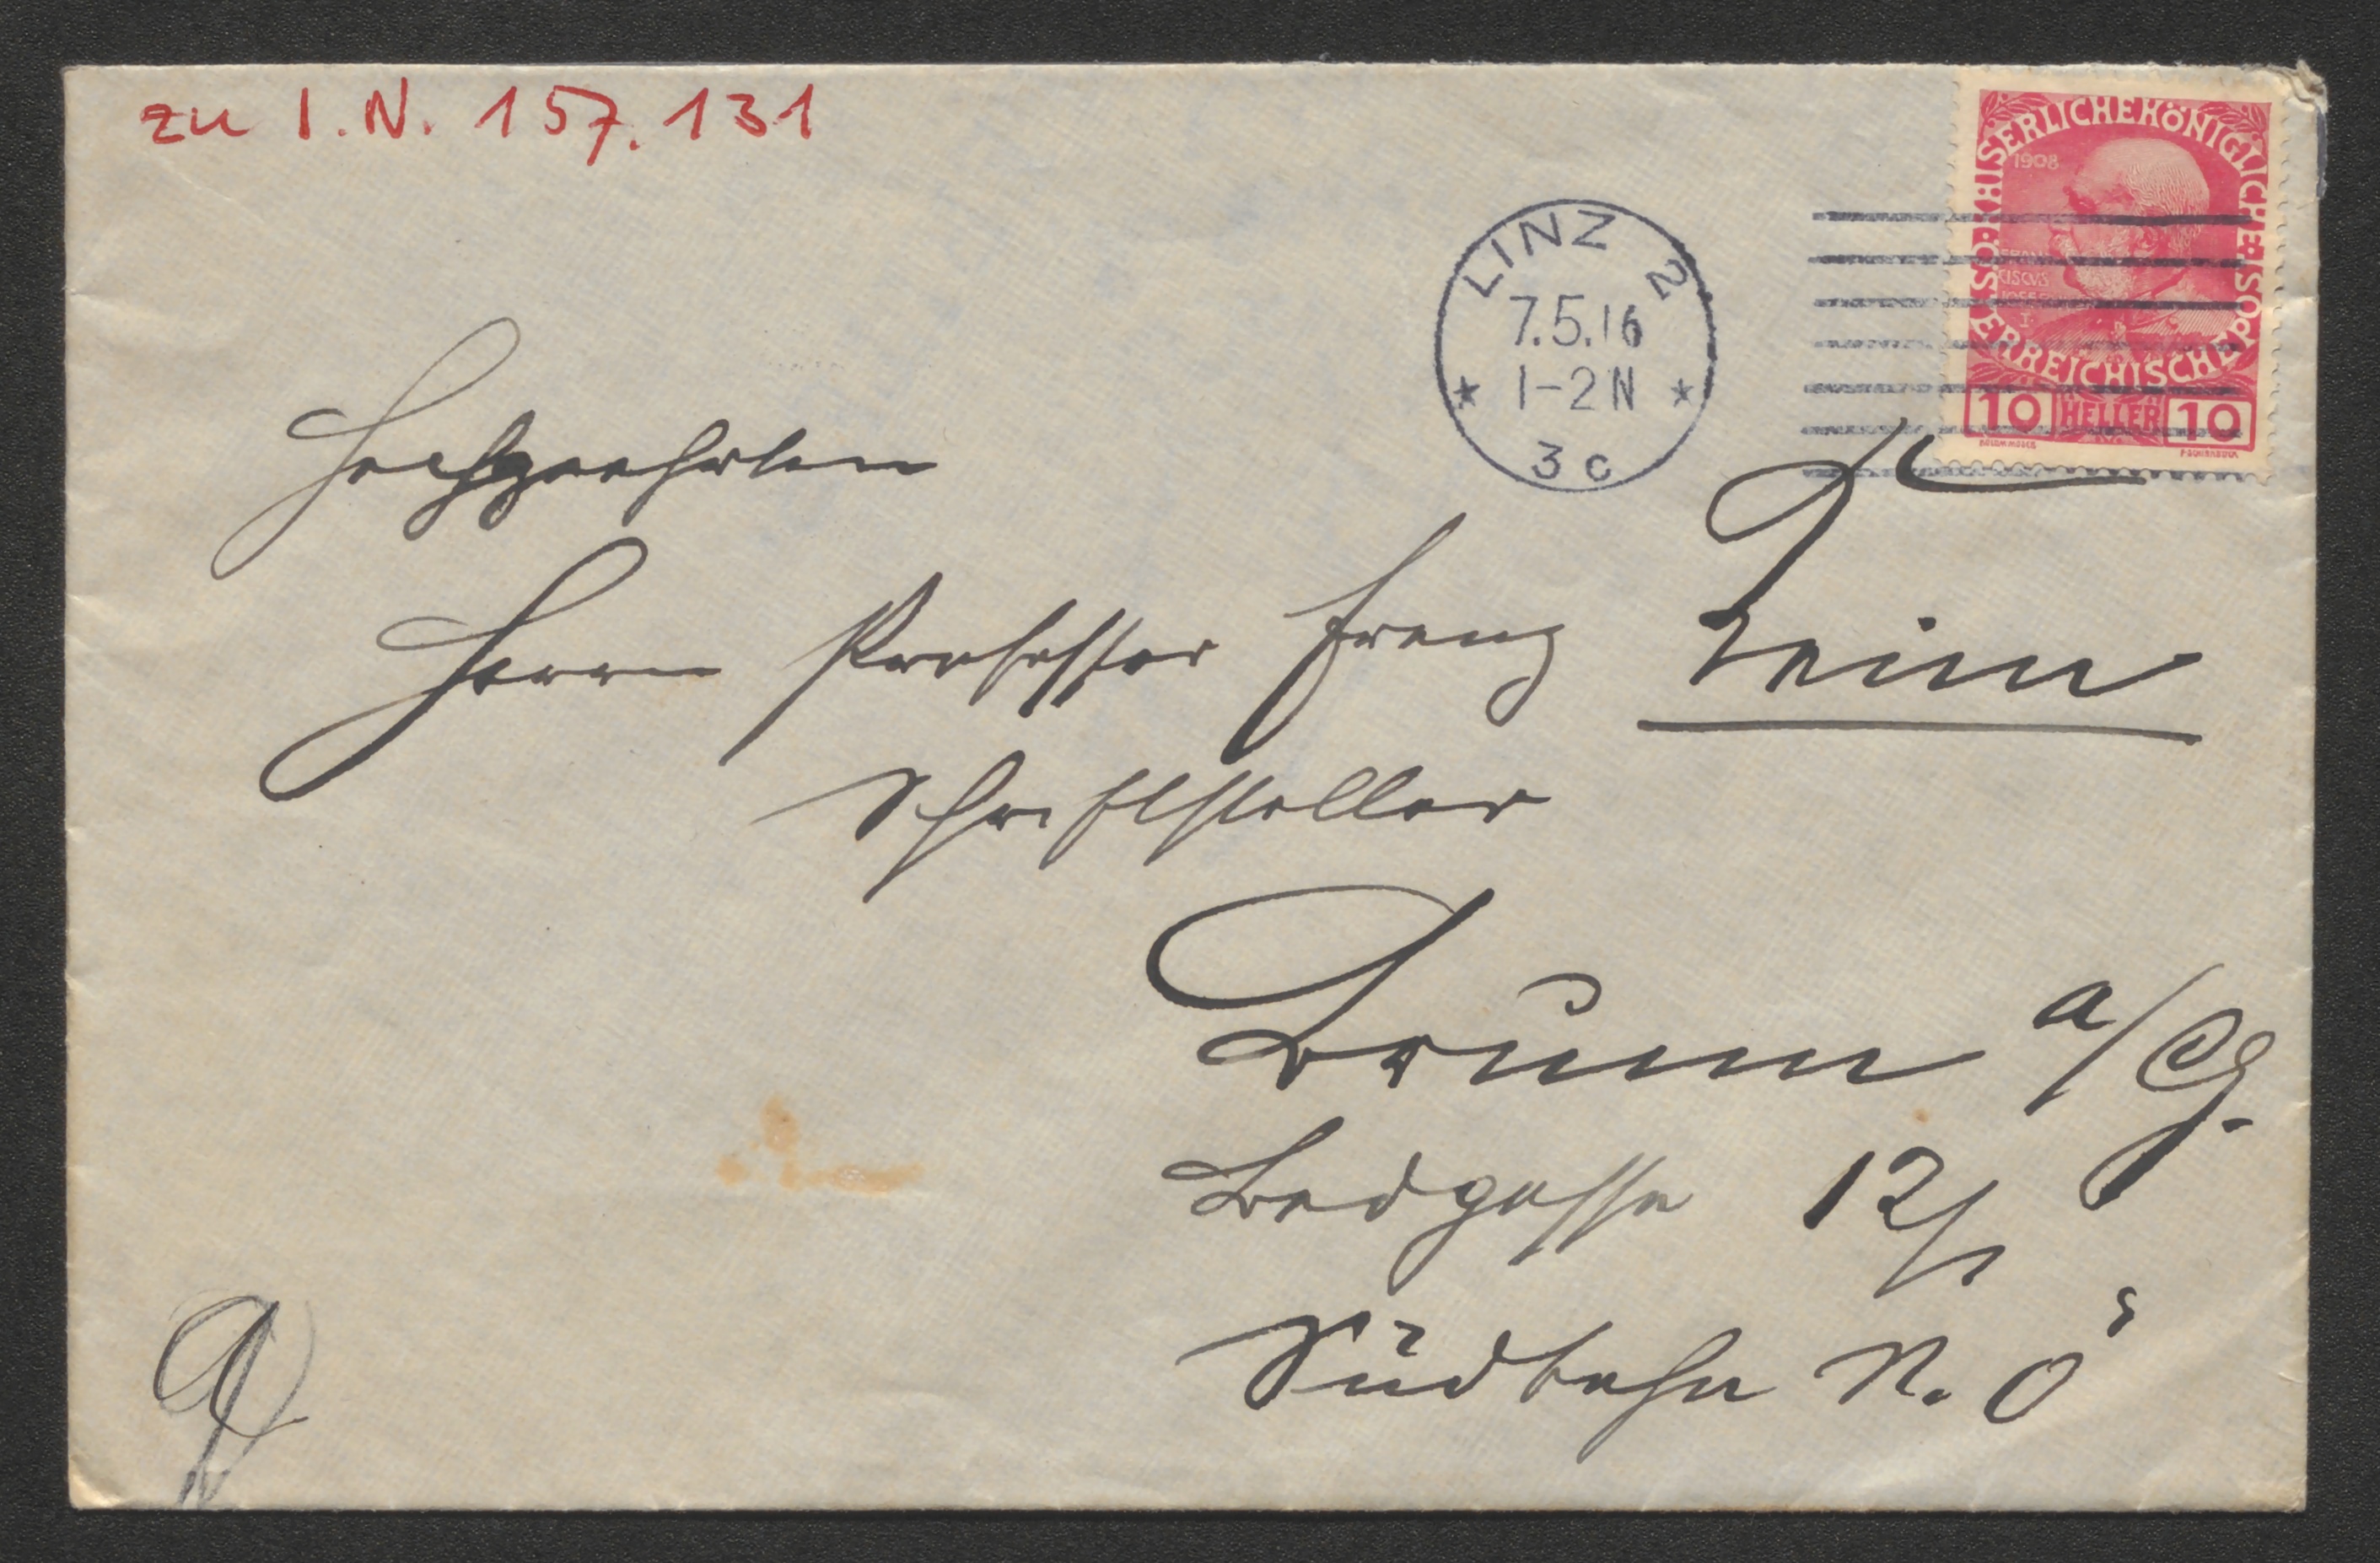 zu I.N. 157.131
KAISERLICHE KÖNIGLICHE ÖSTERREICHISCHE POST
1908
FRANCISCVS JOSEF I.
10 HELLER 10
LINZ 2
7.5.16
1-2N
3c
Hochgeehrten
Herrn Professor Franz Keim
Schriftsteller
Brunn a/G.
Badgasse 12/1
Südbahn N. Ö